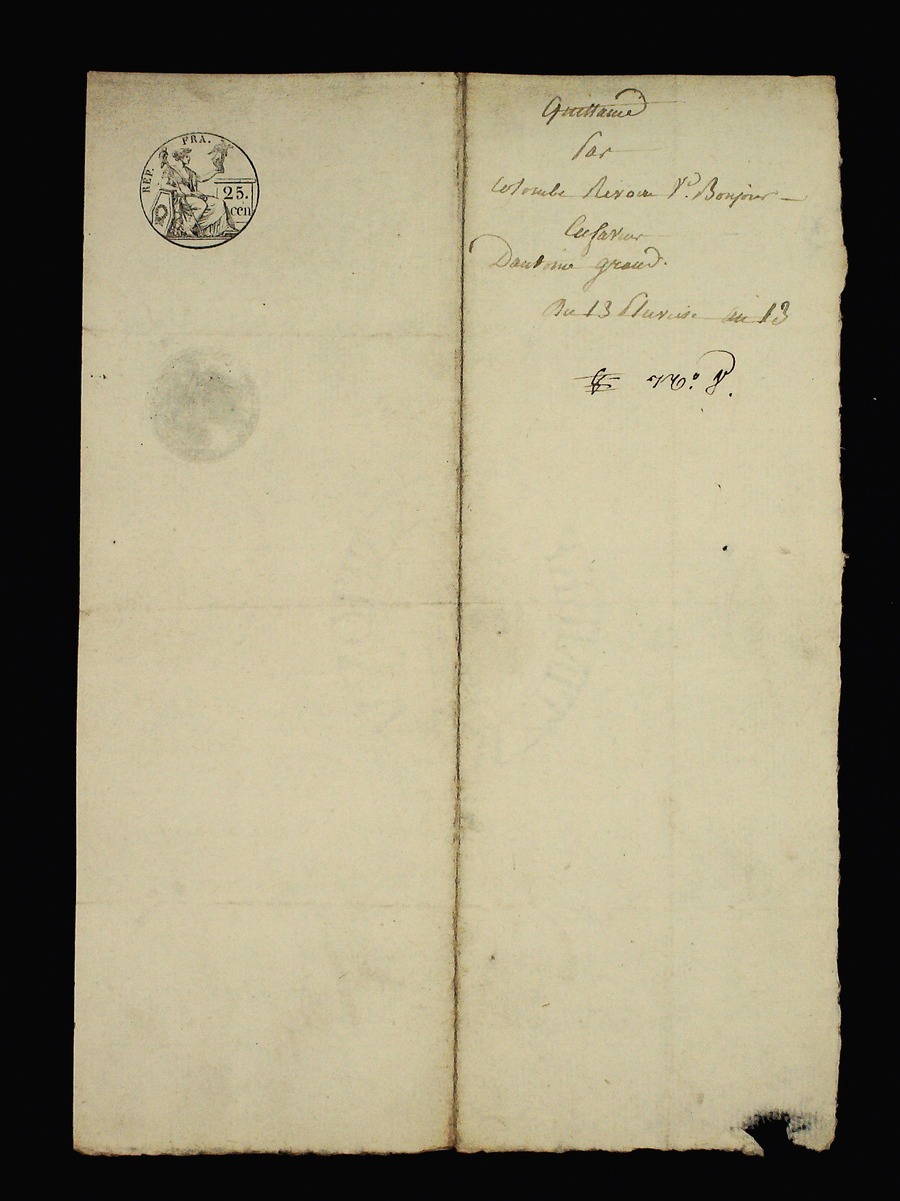 REP. FRA.
25.
cen
Quittance
Par
Colombe Revoin Vᵉ. Bonjour
En faveur
D'antoine grand.
Du 13 Pluviose an 13
N°. 8.